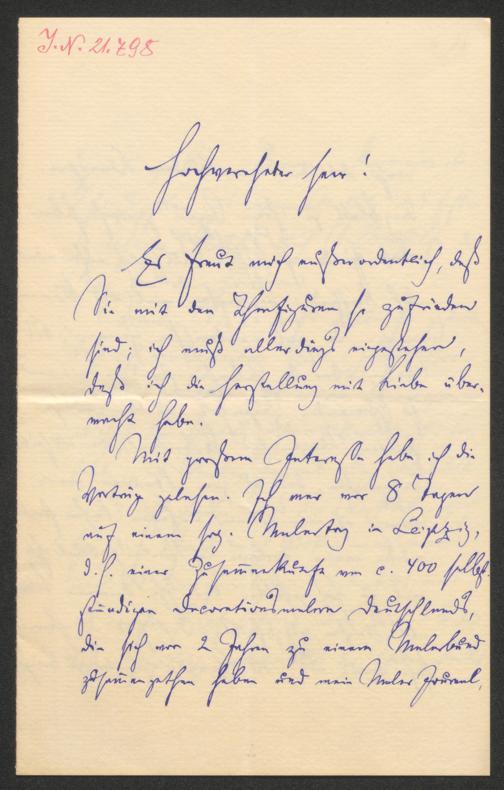 J. N. 21.798
Hochverehrter Herr!
Es freut mich außerordentlich, daß
Sie mit den Thonfiguren so zufrieden
sind; ich muß allerdings eingestehen,
daß ich die Herstellung mit Liebe über-
wacht habe.
Mit großem Interesse habe ich die
Vorträge gelesen. Ich war vor 8 Tagen
auf einem sog. Malertag in Leipzig,
d. h. einer Zusammenkunft von c. 400 selbst-
ständigen Decorationsmalern Deutschlands,
die sich vor 2 Jahren zu einem Malerbund
zusammengethan haben und mein Maler Journal,